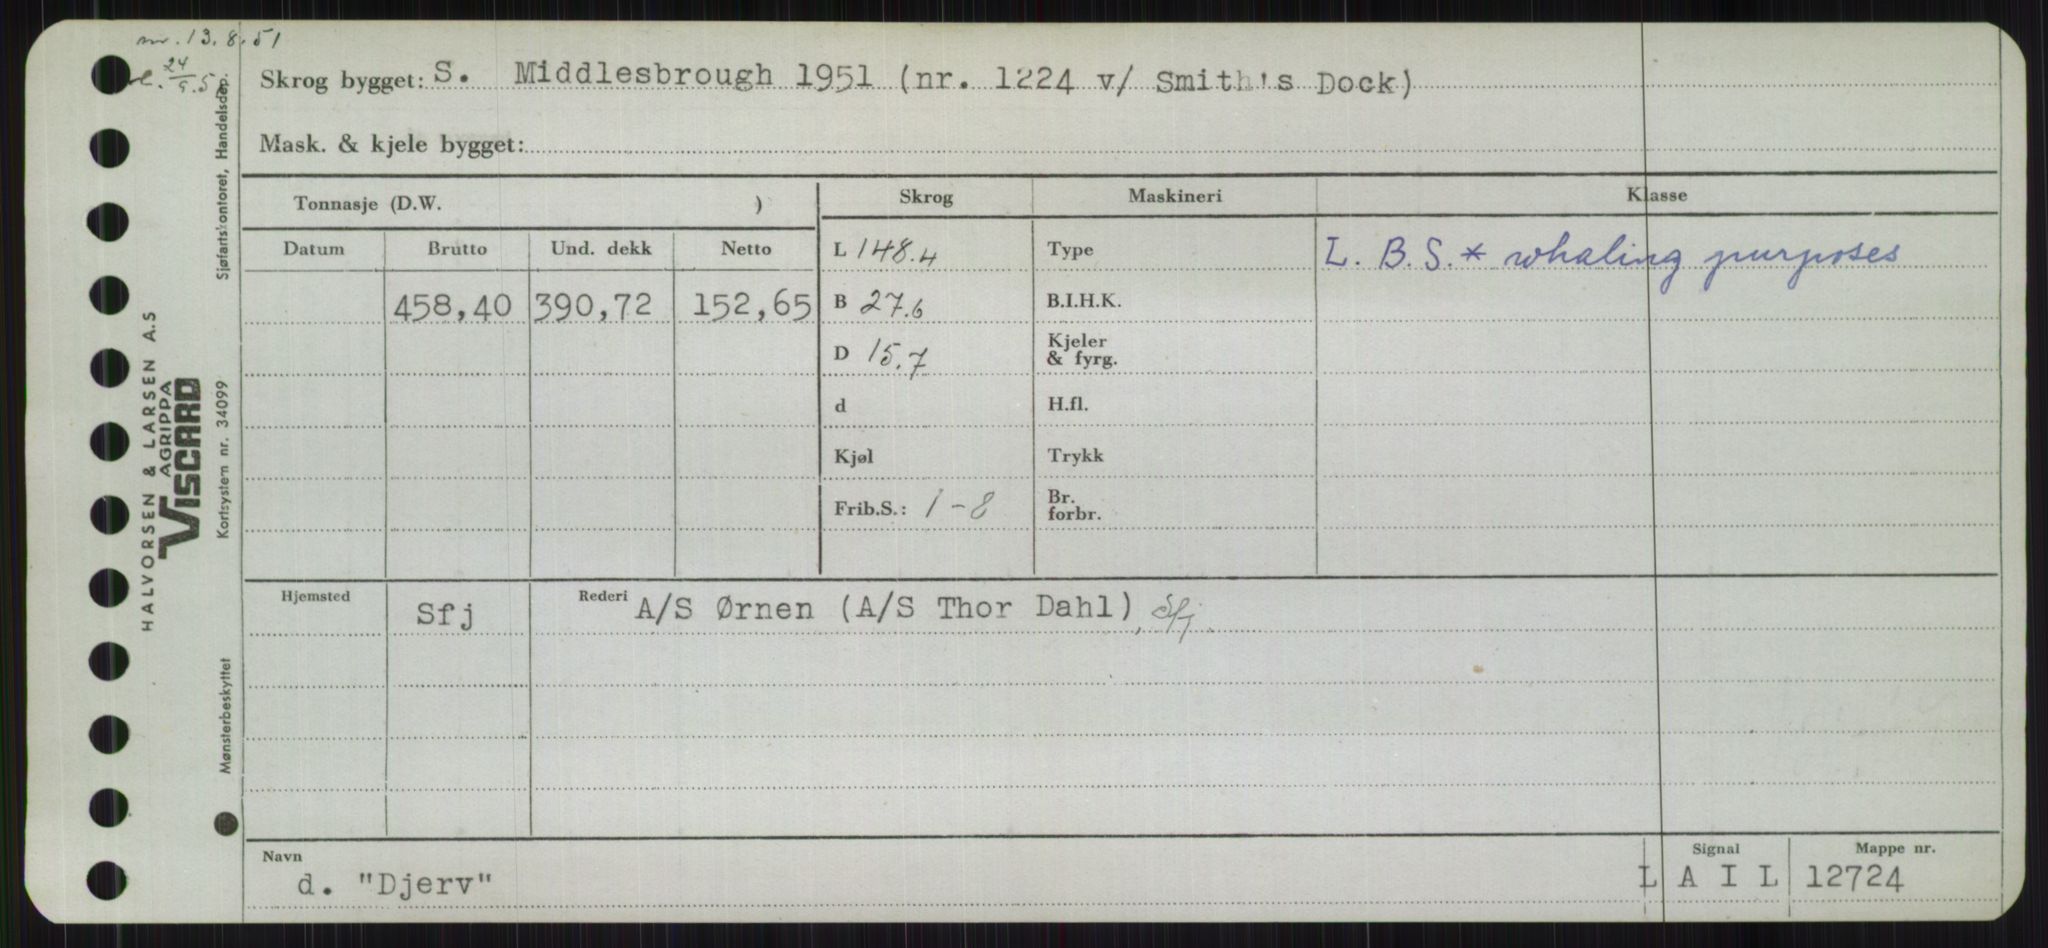 13.8.51
24/9.5
Skrog bygget: S. Middlesbrough 1951 (nr. 1224 v/ Smith's Dock)
Mask. & kjele bygget:
Tonnasje (D.W. )
Skrog Maskineri Klasse
Datum Brutto Und. dekk Netto
L 148.4 Type L. B.S.* whaling purposes
458,40 390,72 152,65 B 27.6 B.I.H.K.
D 15.7 Kjeler
& fyrg.
d H.fl.
Kjøl Trykk
Frib.S.: 1-8 Br.
forbr.
Hjemsted Sfj Rederi A/S Ørnen (A/S Thor Dahl), Sfj
Navn Signal Mappe nr.
d. "Djerv" L A I L 12724
HALVORSEN & LARSEN A.S
AGRIPPA
VISCARD
Sjøfartskontoret, Handelsdep.
Kortsystem nr. 34099
Mønsterbeskyttet